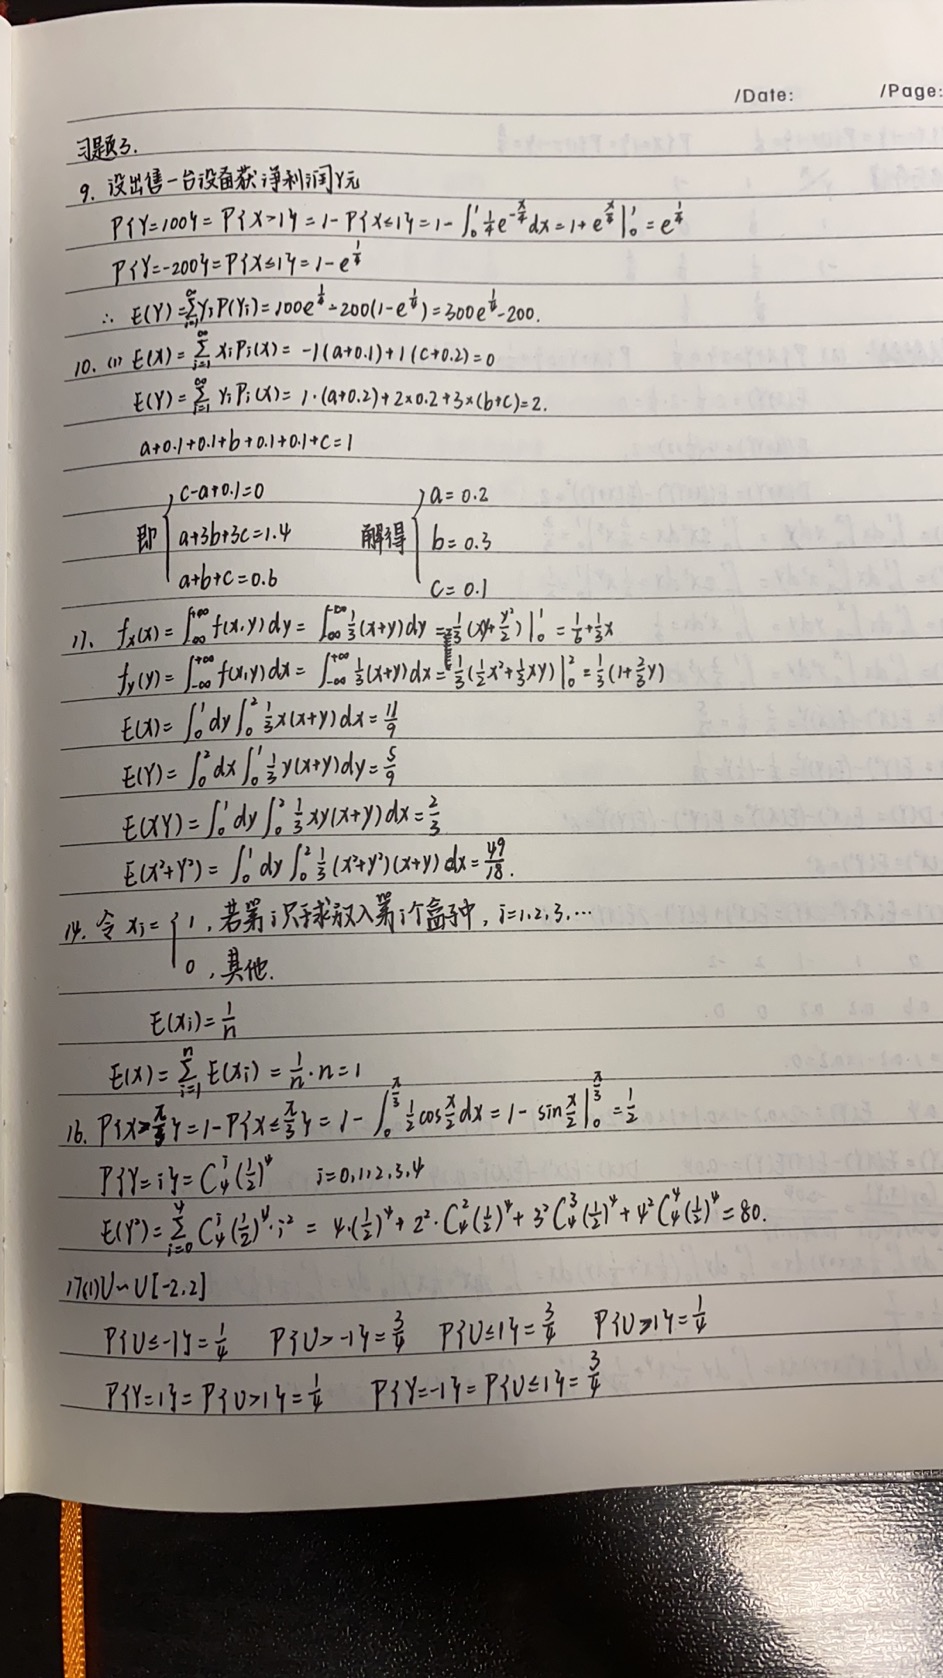 /Date: /Page:
习题3.
9. 设出售一台设备获净利润Y元
P{Y=100}=P{X>1}=1-P{X≤1}=1-∫₀¹ 1/4 e^{-x/4}dx=1+e^{x/4}|₀¹=e^{1/4}
P{Y=-200}=P{X≤1}=1-e^{1/4}
∴ E(Y)=∑_{i=1}^{∞}YiP(Yi)=100e^{1/4}-200(1-e^{1/4})=300e^{1/4}-200.
10. (1) E(X)=∑_{i=1}^{∞} XiPi(X)=-1(a+0.1)+1(c+0.2)=0
E(Y)=∑_{i=1}^{∞} YiPi(X)=1·(a+0.2)+2×0.2+3×(b+c)=2.
a+0.1+0.1+b+0.1+0.1+c=1
即 { c-a+0.1=0 解得 { a=0.2
a+3b+3c=1.4 b=0.3
a+b+c=0.6 c=0.1
13. fx(x)=∫_{-∞}^{+∞} f(x,y)dy=∫_{-∞}^{+∞} 1/3(x+y)dy=1/3(xy+y²/2)|₀¹=1/6+1/3x
fy(y)=∫_{-∞}^{+∞} f(x,y)dx=∫_{-∞}^{+∞} 1/3(x+y)dx=1/3(1/2x²+1/3xy)|₀²=1/3(1+2/3y)
E(X)=∫₀¹dy∫₀² 1/3x(x+y)dx=11/9
E(Y)=∫₀²dx∫₀¹ 1/3y(x+y)dy=5/9
E(XY)=∫₀¹dy∫₀² 1/3xy(x+y)dx=2/3
E(X²+Y²)=∫₀¹dy∫₀² 1/3(x²+y²)(x+y)dx=49/18.
14. 令 Xi={ 1, 若第i只球放入第i个盒子中, i=1.2.3.…
0, 其他.
E(Xi)=1/n
E(X)=∑_{i=1}^{n} E(Xi)=1/n·n=1
16. P{X>π/3}=1-P{X≤π/3}=1-∫₀^{π/3} 1/2cos x/2 dx=1-sin x/2|₀^{π/3}=1/2
P{Y=i}=C₄ⁱ(1/2)⁴ i=0,1,2,3,4
E(Y²)=∑_{i=0}^{4} C₄ⁱ(1/2)⁴·i²=4·(1/2)⁴+2²·C₄²(1/2)⁴+3²C₄³(1/2)⁴+4²C₄⁴(1/2)⁴=80.
17(1)U~U[-2,2]
P{U≤-1}=1/4 P{U>-1}=3/4 P{U≤1}=3/4 P{U>1}=1/4
P{Y=1}=P{U>1}=1/4 P{Y=-1}=P{U≤1}=3/4